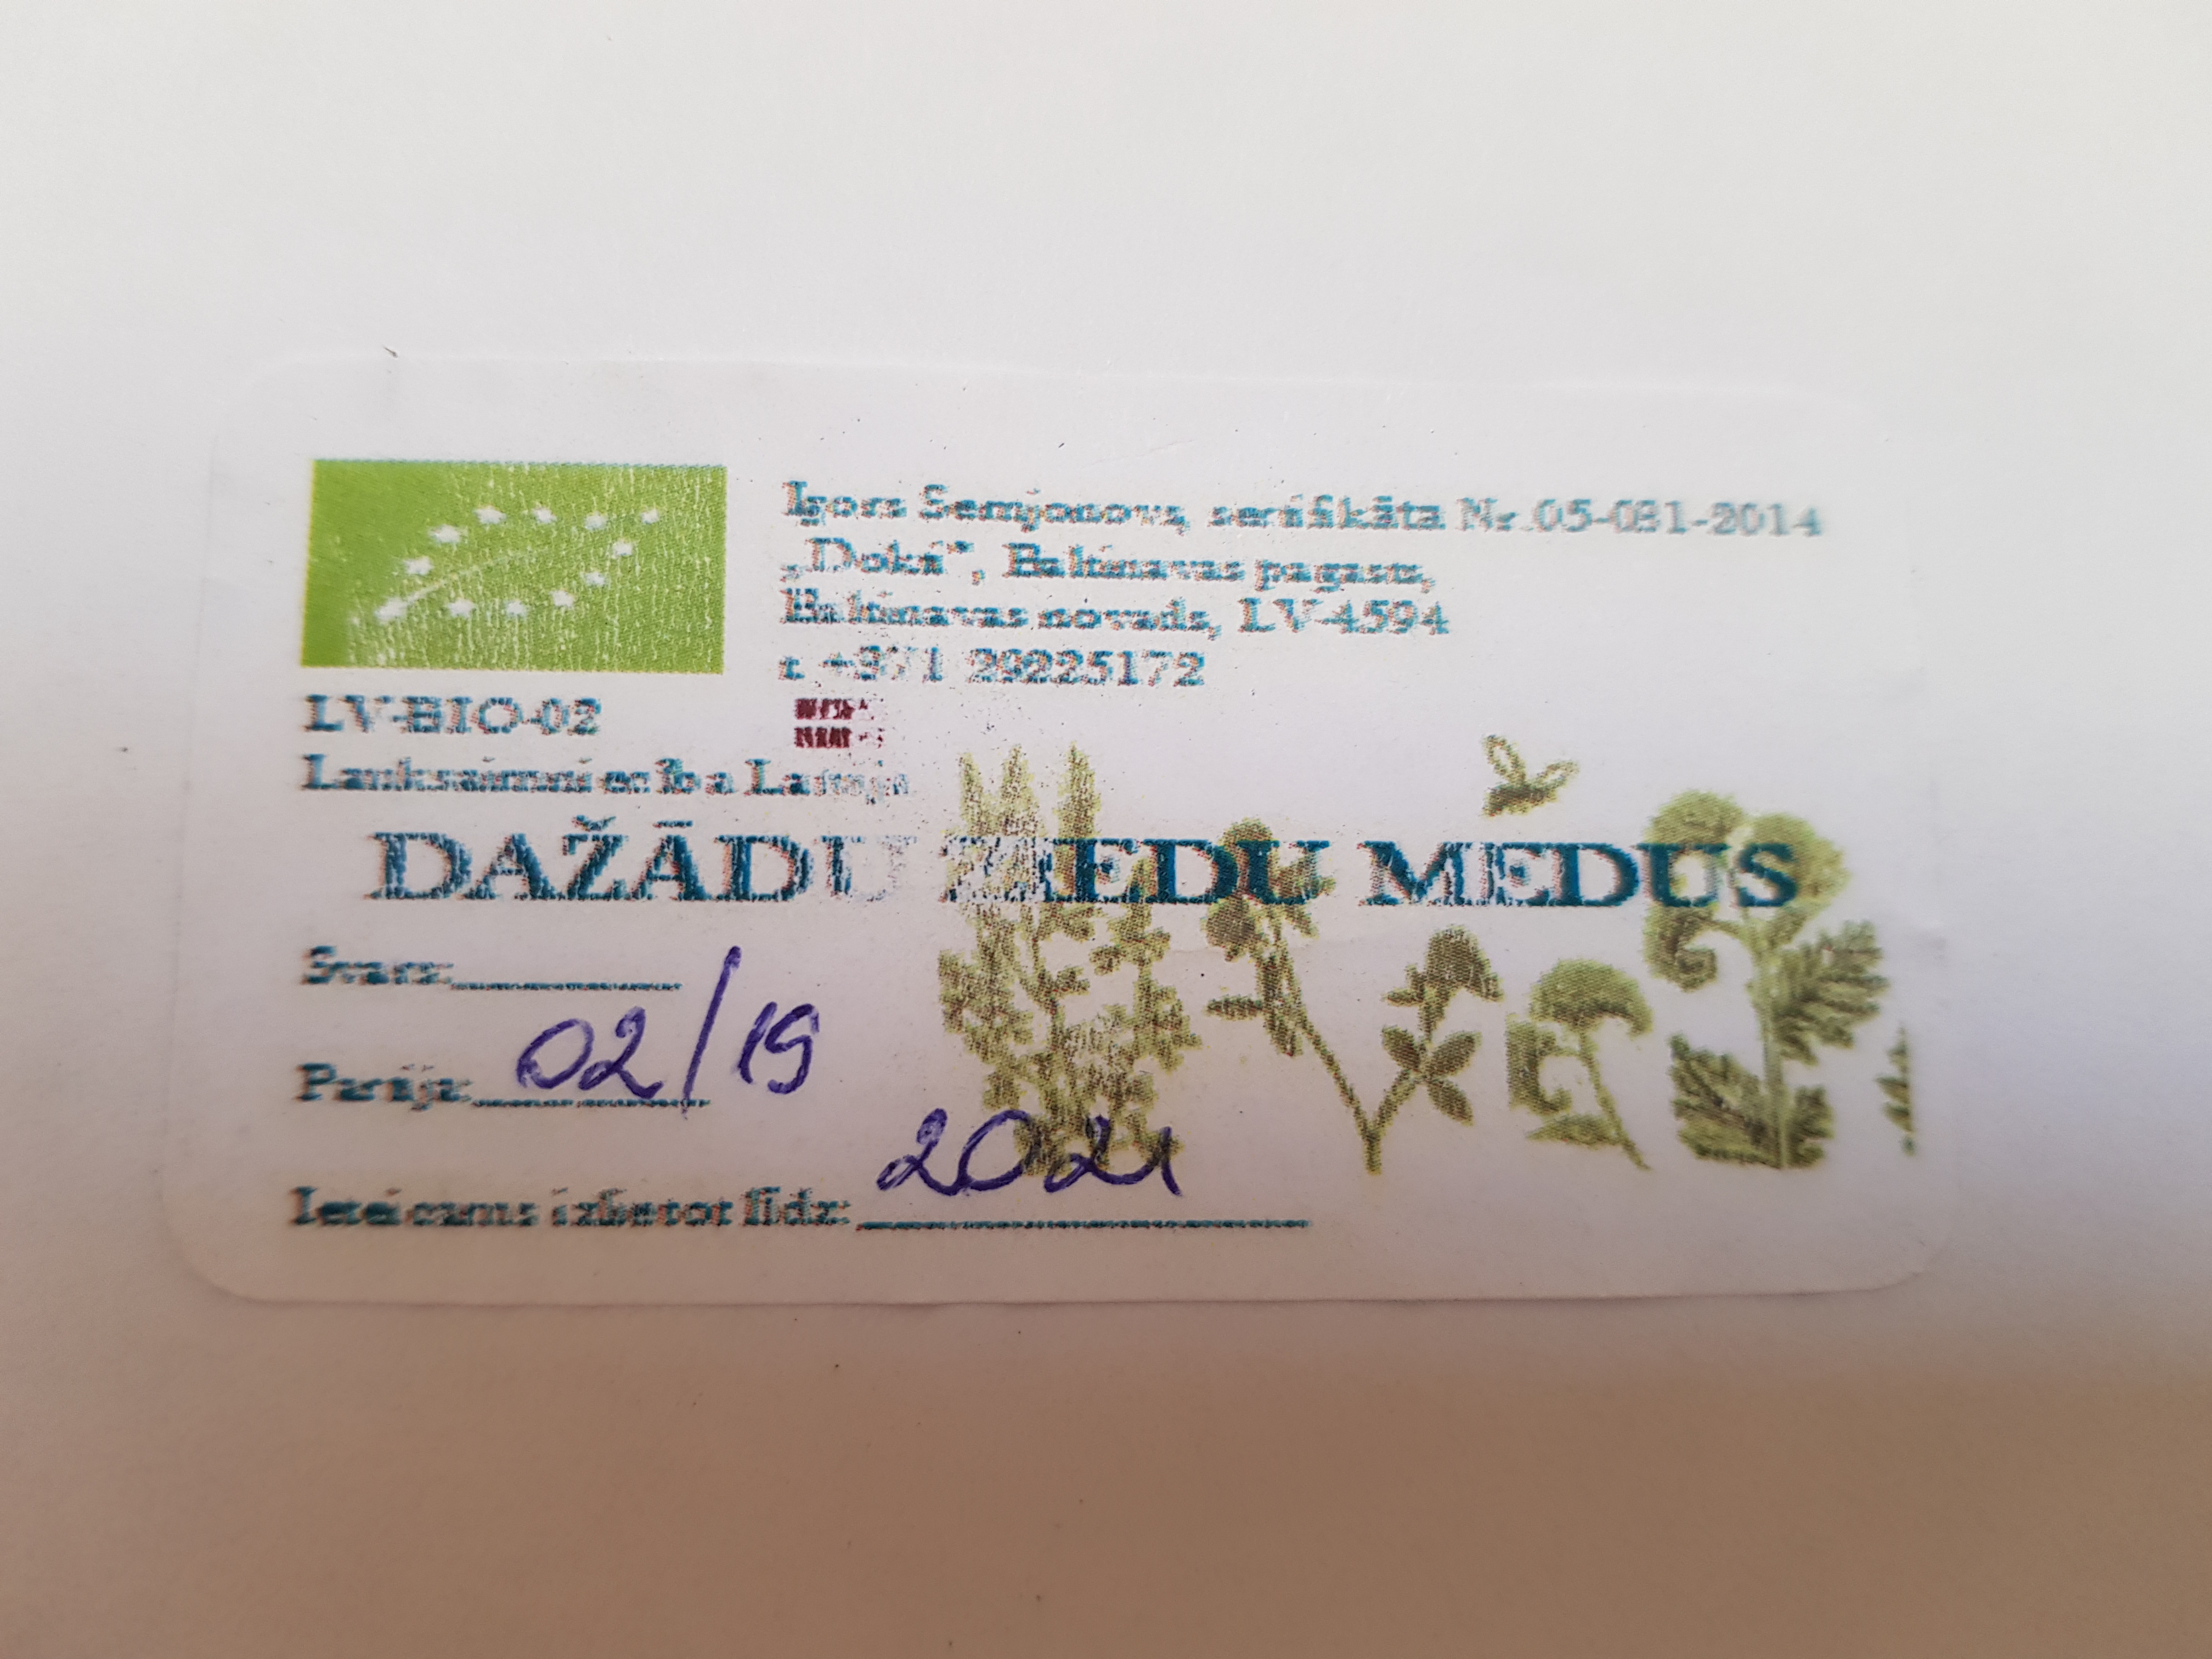 Igors Semjonovs, sertifikāta Nr.05-081-2014
„Doki”, Baltinavas pagasts,
Baltinavas novads, LV-4594
t. +371 29225172
LV-BIO-02
Lauksaimniecība Latvija
DAŽĀDU ZIEDU MEDUS
Svars:
Partija: 02/19
Ieteicams izlietot līdz: 2021